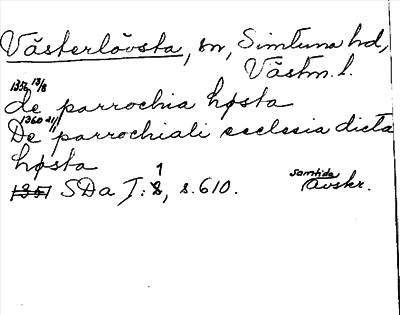 Västerlövsta, sn, Simtuna hd,
Västm. l.
1356 13/8
de parrochia høsta
1360 21/1
De parrochiali ecclesia dicta
høsta
1351 SDa I: 1 8, s. 610. samtida Avskr.